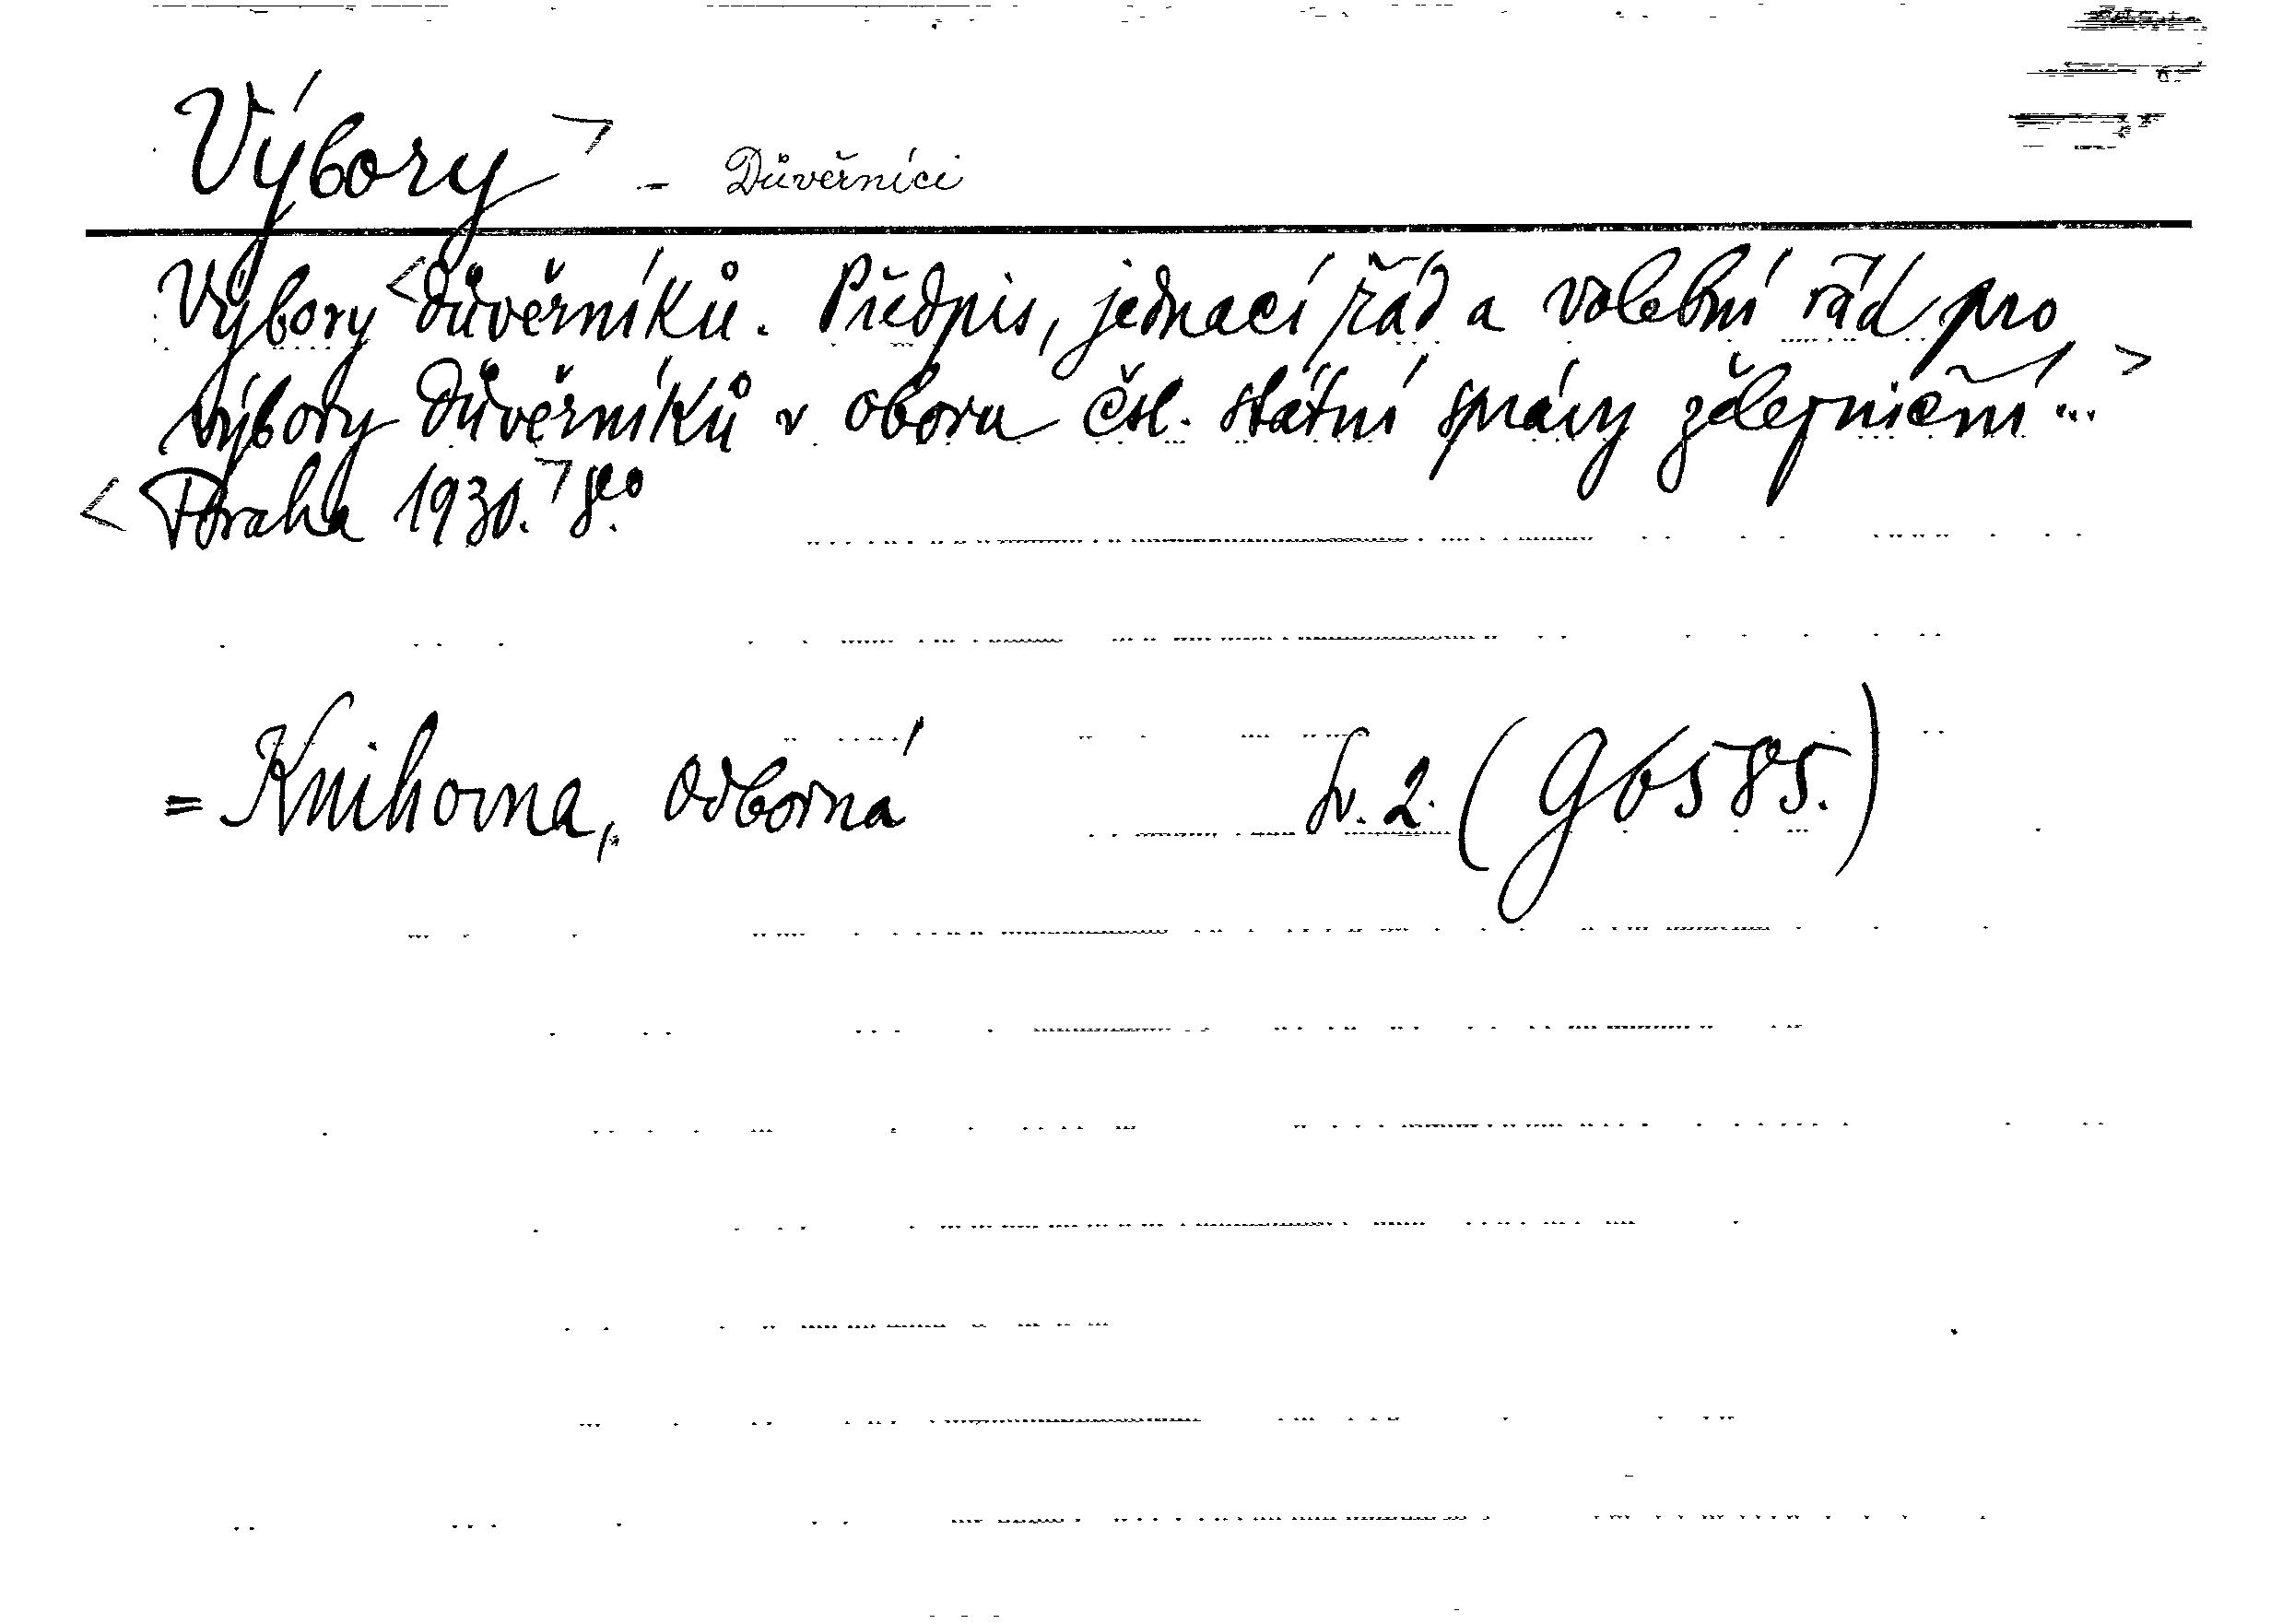 Výbory > - Důvěrníci
Výbory < důvěrníků. Předpis, jednací řád a volební řád pro
výbory důvěrníků v oboru čsl. státní správy železniční... >
< Praha 1930. > 8°.
= Knihovna, odborná sv. 2. (G 6585.)